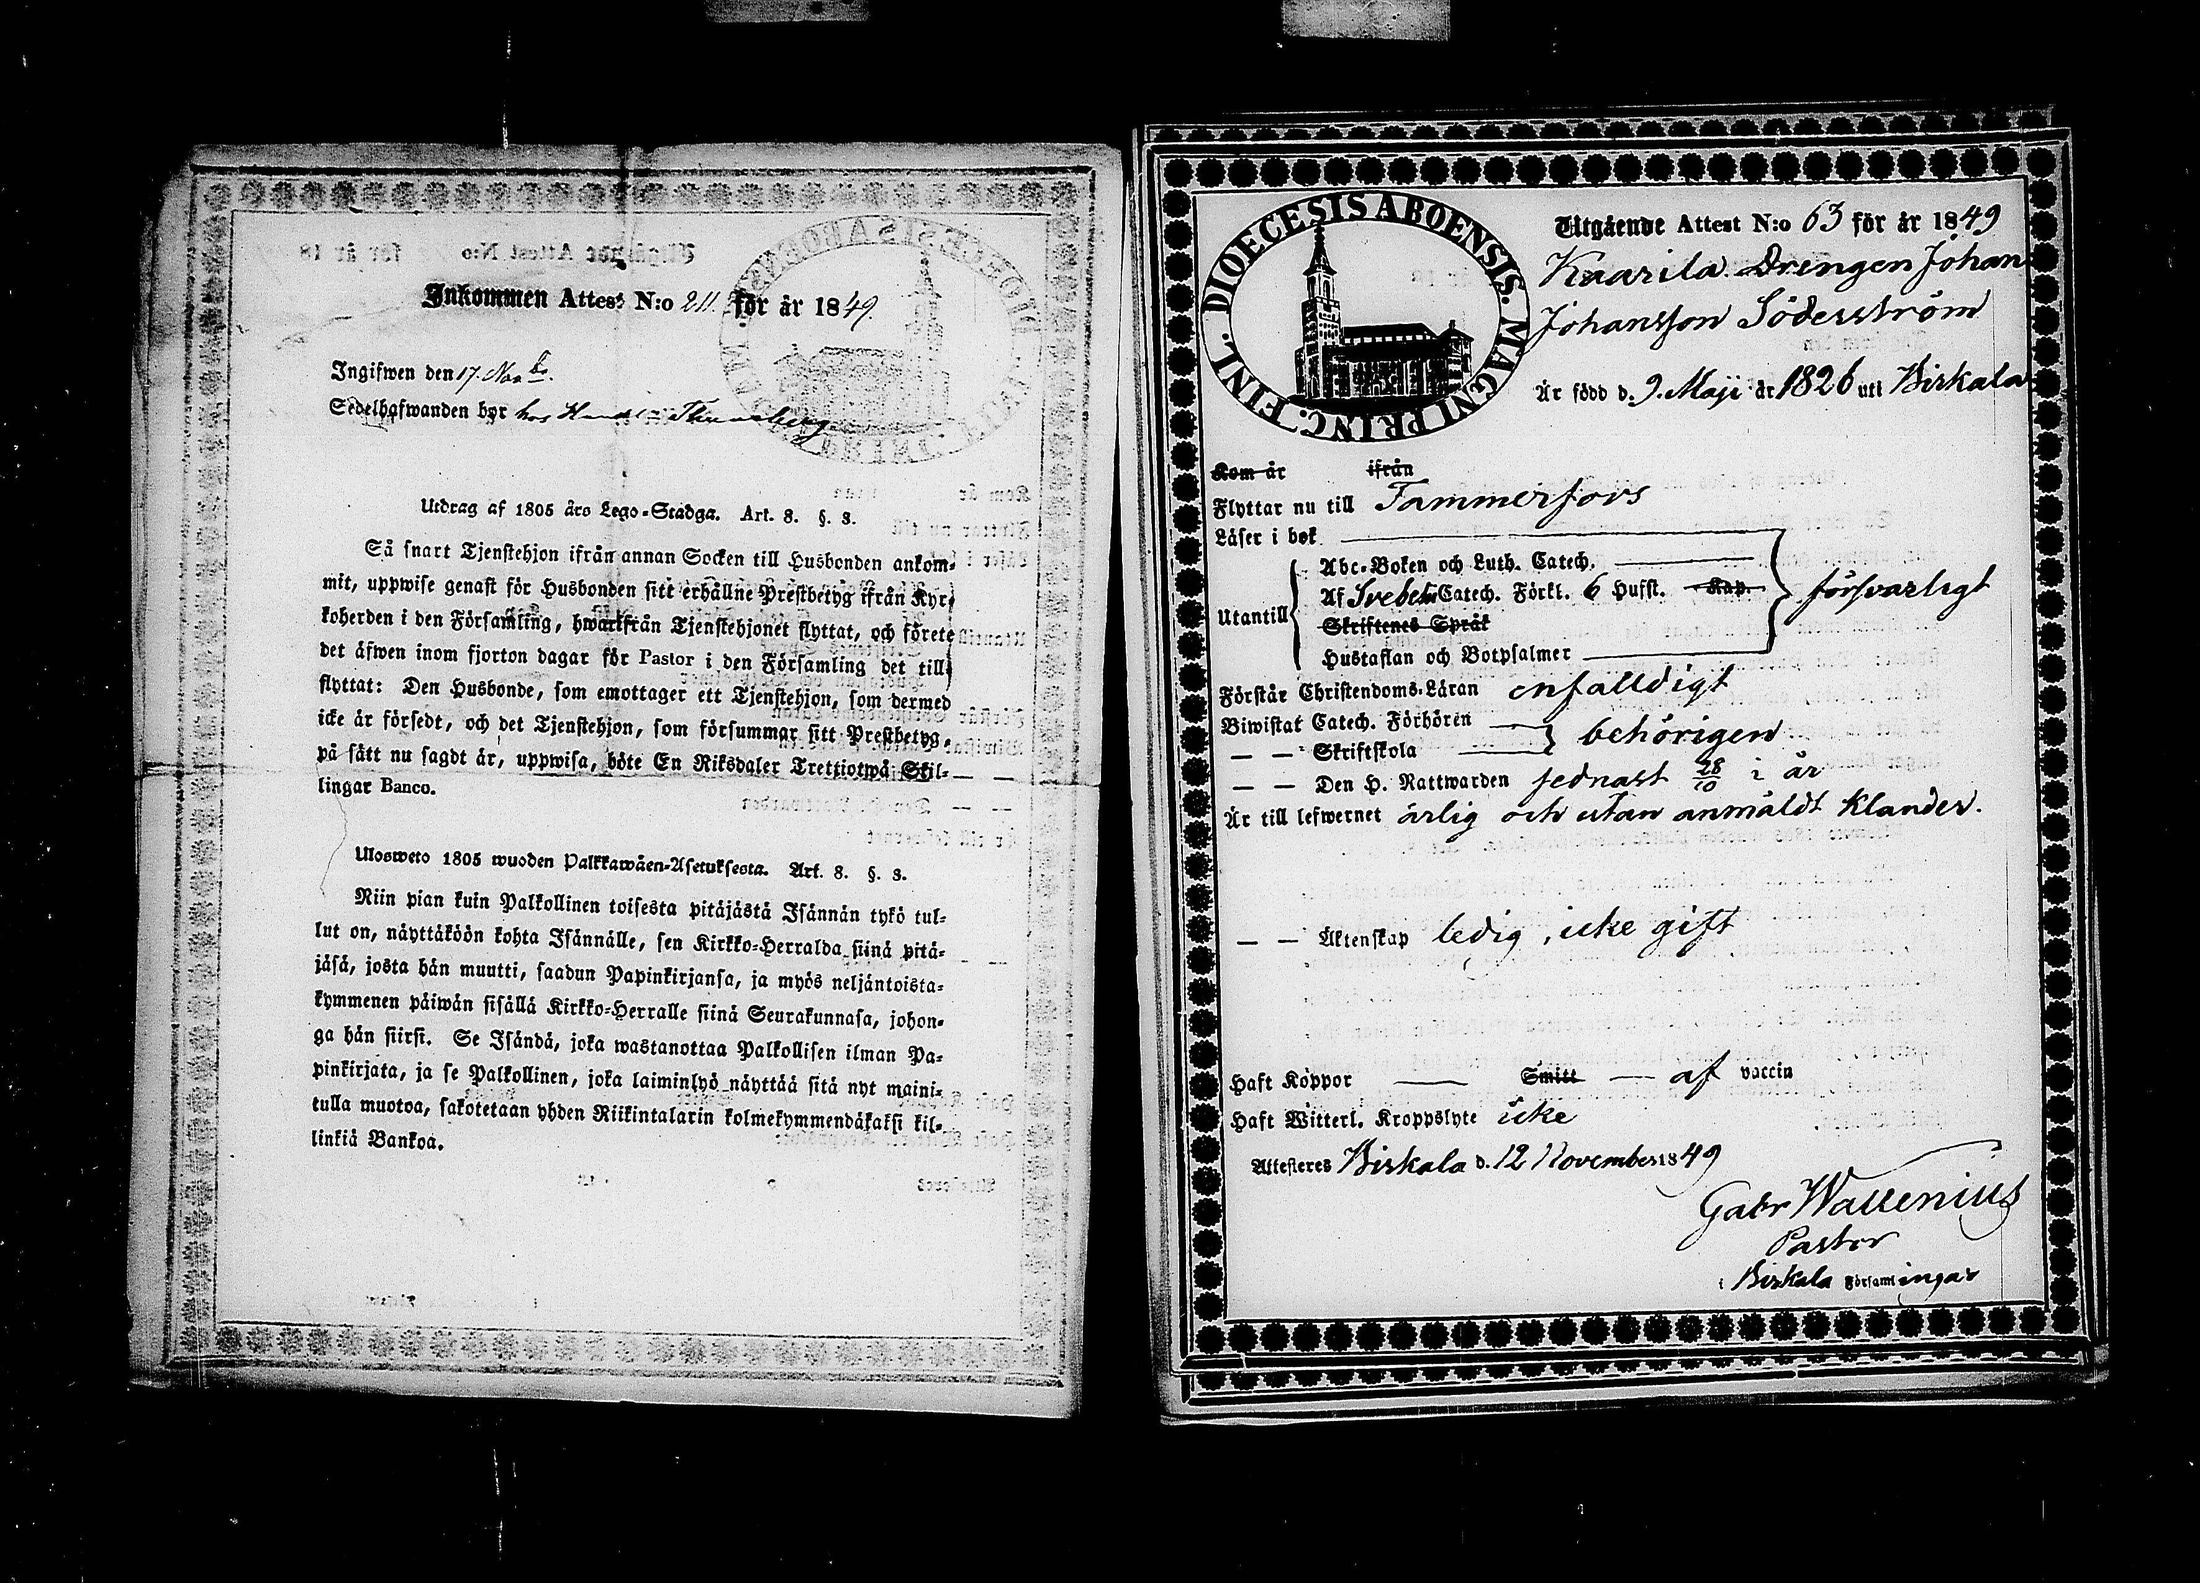 Inkommen Attest N:o 211 för år 1849.
Ingifwen den 17. Novbr.
Sedelhafwanden bor hos
Utdrag af 1805 års Lego-Stadga. Art. 8. §. 8.
Så snart Tjenstehjon ifrån annan Socken till Husbonden ankom-
mit, uppwise genast för Husbonden sitt erhållne Prestbetyg ifrån Kyr-
koherden i den Församling, hwarifrån Tjenstehjonet flyttat, och förete
det äfwen inom fjorton dagar för Pastor i den Församling det till-
flyttat: Den Husbonde, som emottager ett Tjenstehjon, som dermed
icke är försedt, och det Tjenstehjon, som försummar sitt Prestbetyg,
på sätt nu sagdt är, uppwisa, böte En Riksdaler Trettiotwå Skil-
lingar Banco.
Ulosweto 1805 wuoden Palkkawäen-Asetuksesta. Art. 8. §. 8.
Niin pian kuin Palkollinen toisesta pitäjästä Isännän tykö tul-
lut on, näyttäköön kohta Isännälle, sen Kirkko-Herralda siinä pitä-
jäsä, josta hän muutti, saadun Papinkirjansa, ja myös neljäntoista-
kymmenen päiwän sisällä Kirkko-Herralle siinä Seurakunnasa, johon-
ga hän siirsi. Se Isändä, joka wastanottaa Palkollisen ilman Pa-
pinkirjata, ja se Palkollinen, joka laiminlyö näyttää sitä nyt maini-
tulla muotoa, sakotetaan yhden Riikintalarin kolmekymmendäkaksi kil-
linkiä Bankoa.
DIOECESIS ABOENSIS. MAGNI PRINC. FINL.
Utgående Attest N:o 63 för år 1849
Kaarila Drengen Johan
Johansson Söderström
Är född d. 9. Maji år 1826 uti Birkala
Kom år ifrån
Flyttar nu till Tammerfors
Läser i bok
Abc-Boken och Luth. Catech.
Utantill Af Svebelii Catech. Förkl. 6 Hufst. Kap. försvarligt
Skriftenes Språk
Hustaflan och Botpsalmer
Förstår Christendoms-Läran enfalldigt
Biwistat Catech. Förhören
— — Skriftskola behörigen
— — Den H. Nattwarden sednast 28/10 i år
Är till lefwernet ärlig och utan anmäldt klander.
— — Äktenskap ledig, icke gift
Haft Koppor — Smitt — af vaccin
Haft Witterl. Kroppslyte icke
Attesteres Birkala d. 12 November 1849
Gabr Wallenius
Pastor
i Birkala Församlingar